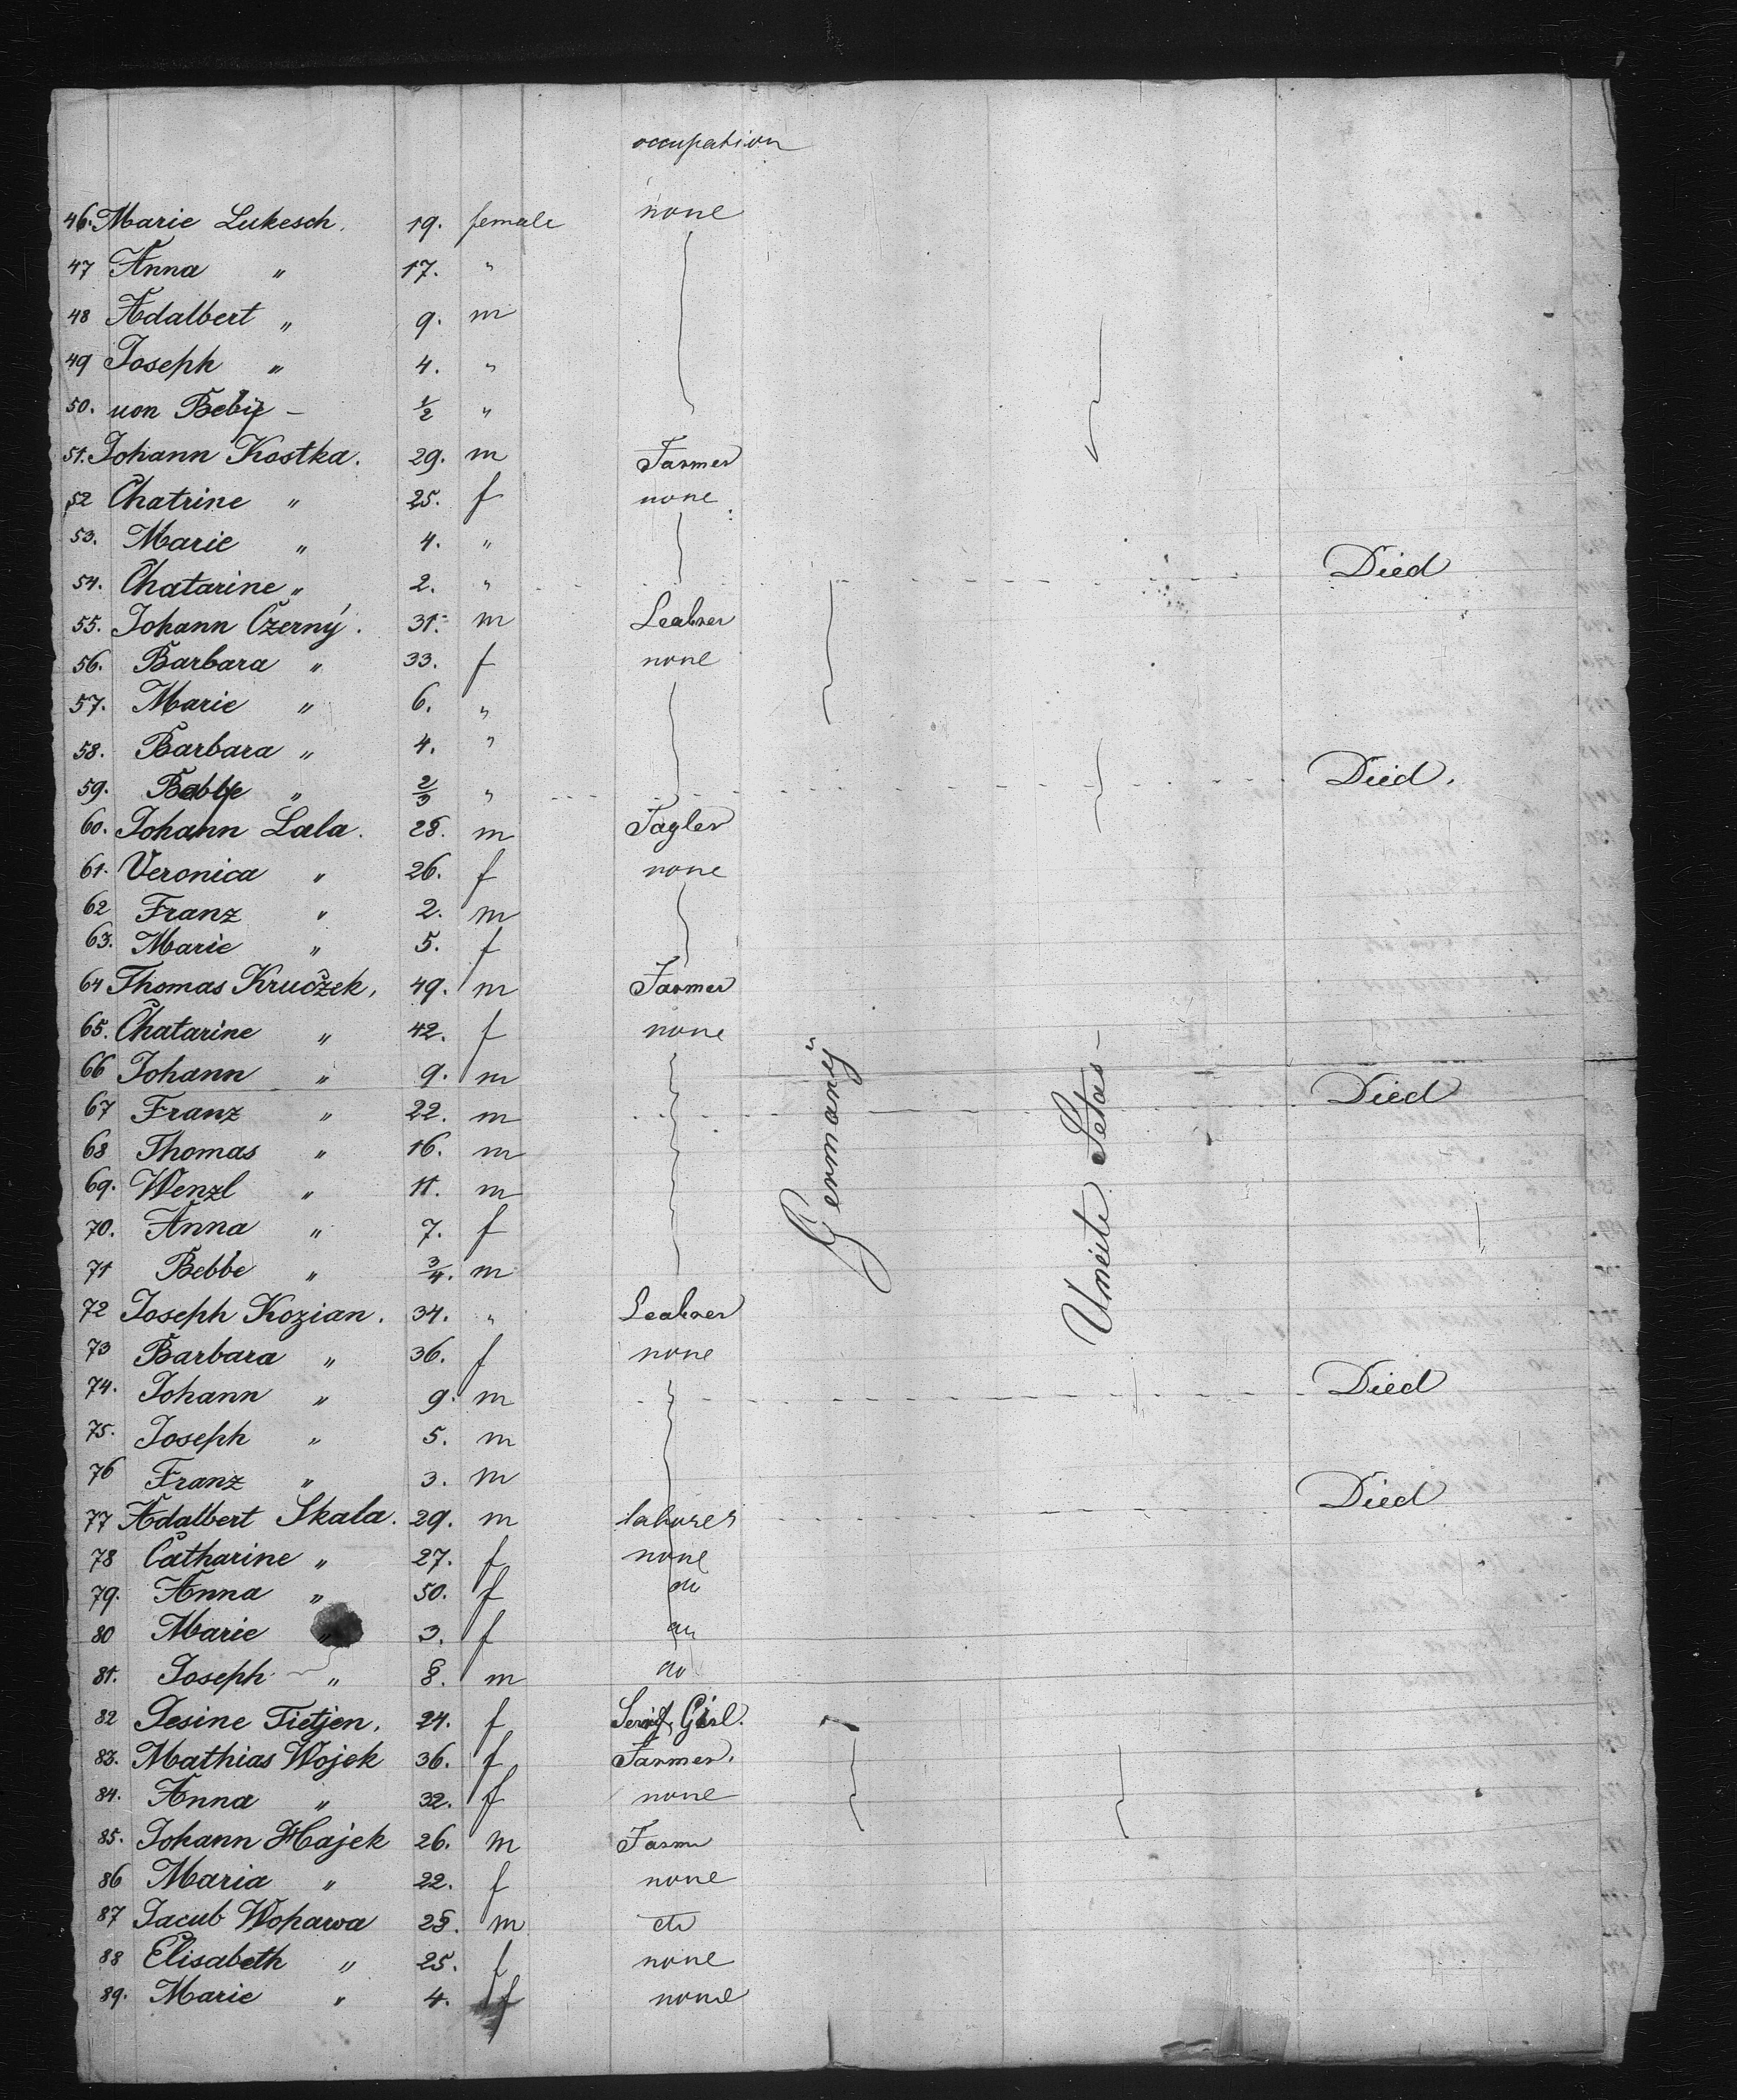 occupation
46. Marie Lukesch. 19. female none
47 Anna " 17. "
48 Adalbert " 9. m
49 Joseph " 4. "
50. von Beby - ½ "
51. Johann Kostka. 29. m Farmer
52 Chatrine " 25. f none
53. Marie " 4. "
54. Chatarine " 2. " Died
55. Johann Czerný. 31. m Leabrer
56. Barbara " 33. f none
57. Marie " 6. "
58. Barbara " 4. "
59. " ⅔ " Died.
60. Johann Lala. 28. m Tagler
61. Veronica " 26. f none
62 Franz " 2. m
63. Marie " 5. f
64 Thomas Kručzek, 49. m Farmer
65. Chatarine " 42. f none
66 Johann " 9. m
67 Franz " 22. m Died
68 Thomas " 16. m
69. Wenzl " 11. m
70. Anna " 7. f
71 Bebbe " ¾. m
72 Joseph Kozian. 34. " Leabrer
73 Barbara " 36. f none
74. Johann " 9. m Died
75. Joseph " 5. m
76 Franz " 3. m
77 Adalbert Skala. 29. m laborer Died
78 Catharine " 27. f none
79. Anna " 50. f do
80 Marie " 3. f do
81. Joseph " 8. m do
82 Gesine Tietjen. 24. f Girl.
83. Mathias Wojek 36. f Farmer.
84. Anna " 32. f none
85. Johann Hajek 26. m Farm
86 Maria " 22. f none
87 Jacub Woparva 28. m do
88 Elisabeth " 25. f none
89. Marie " 4. f none
Germany
Uneite Setas -